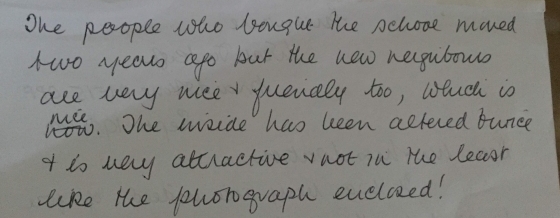 The people who bought the school moved
two years ago but the new neighbours
are very nice & friendly too, which is
nice
now. The inside has been altered twice
& is very attractive & not in the least
like the photograph enclosed!